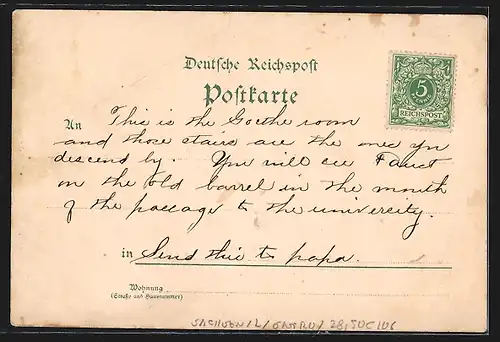 Deutsche Reichspost
Postkarte
5
REICHSPOST
An This is the Goethe room
and those stairs are the ones you
descend by. You will see Faust
on the old barrel in the mouth
of the passage to the university.
in Send this to papa.
Wohnung
(Straße und Hausnummer)